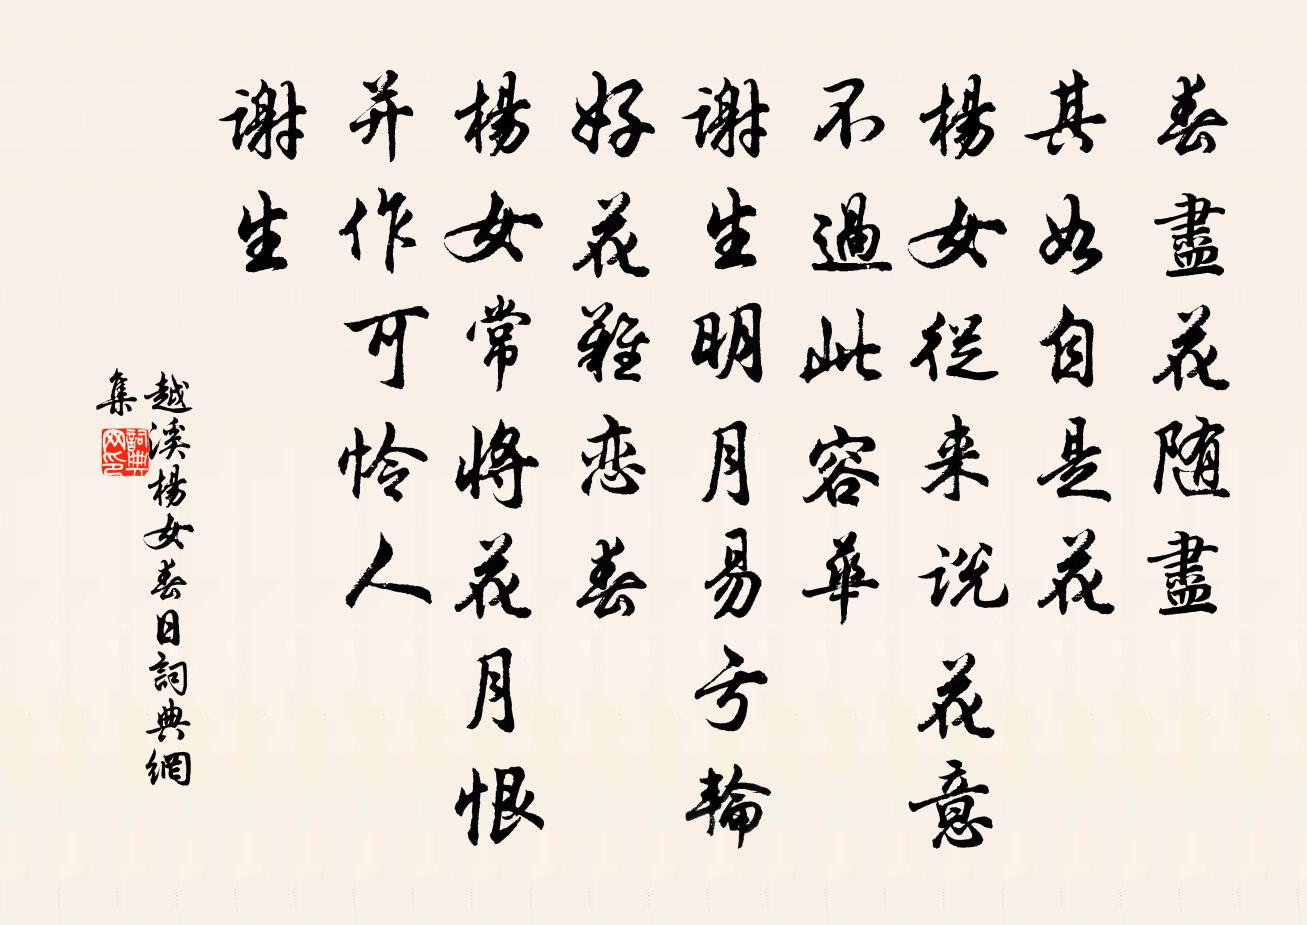 春盡花随盡
其如自是花
楊女從来説花意
不過此容華
謝生明月易亏輪
好花難恋春
楊女常將花月恨
并作可怜人
謝生
越溪楊女春日詞典網
集
詞典
网印